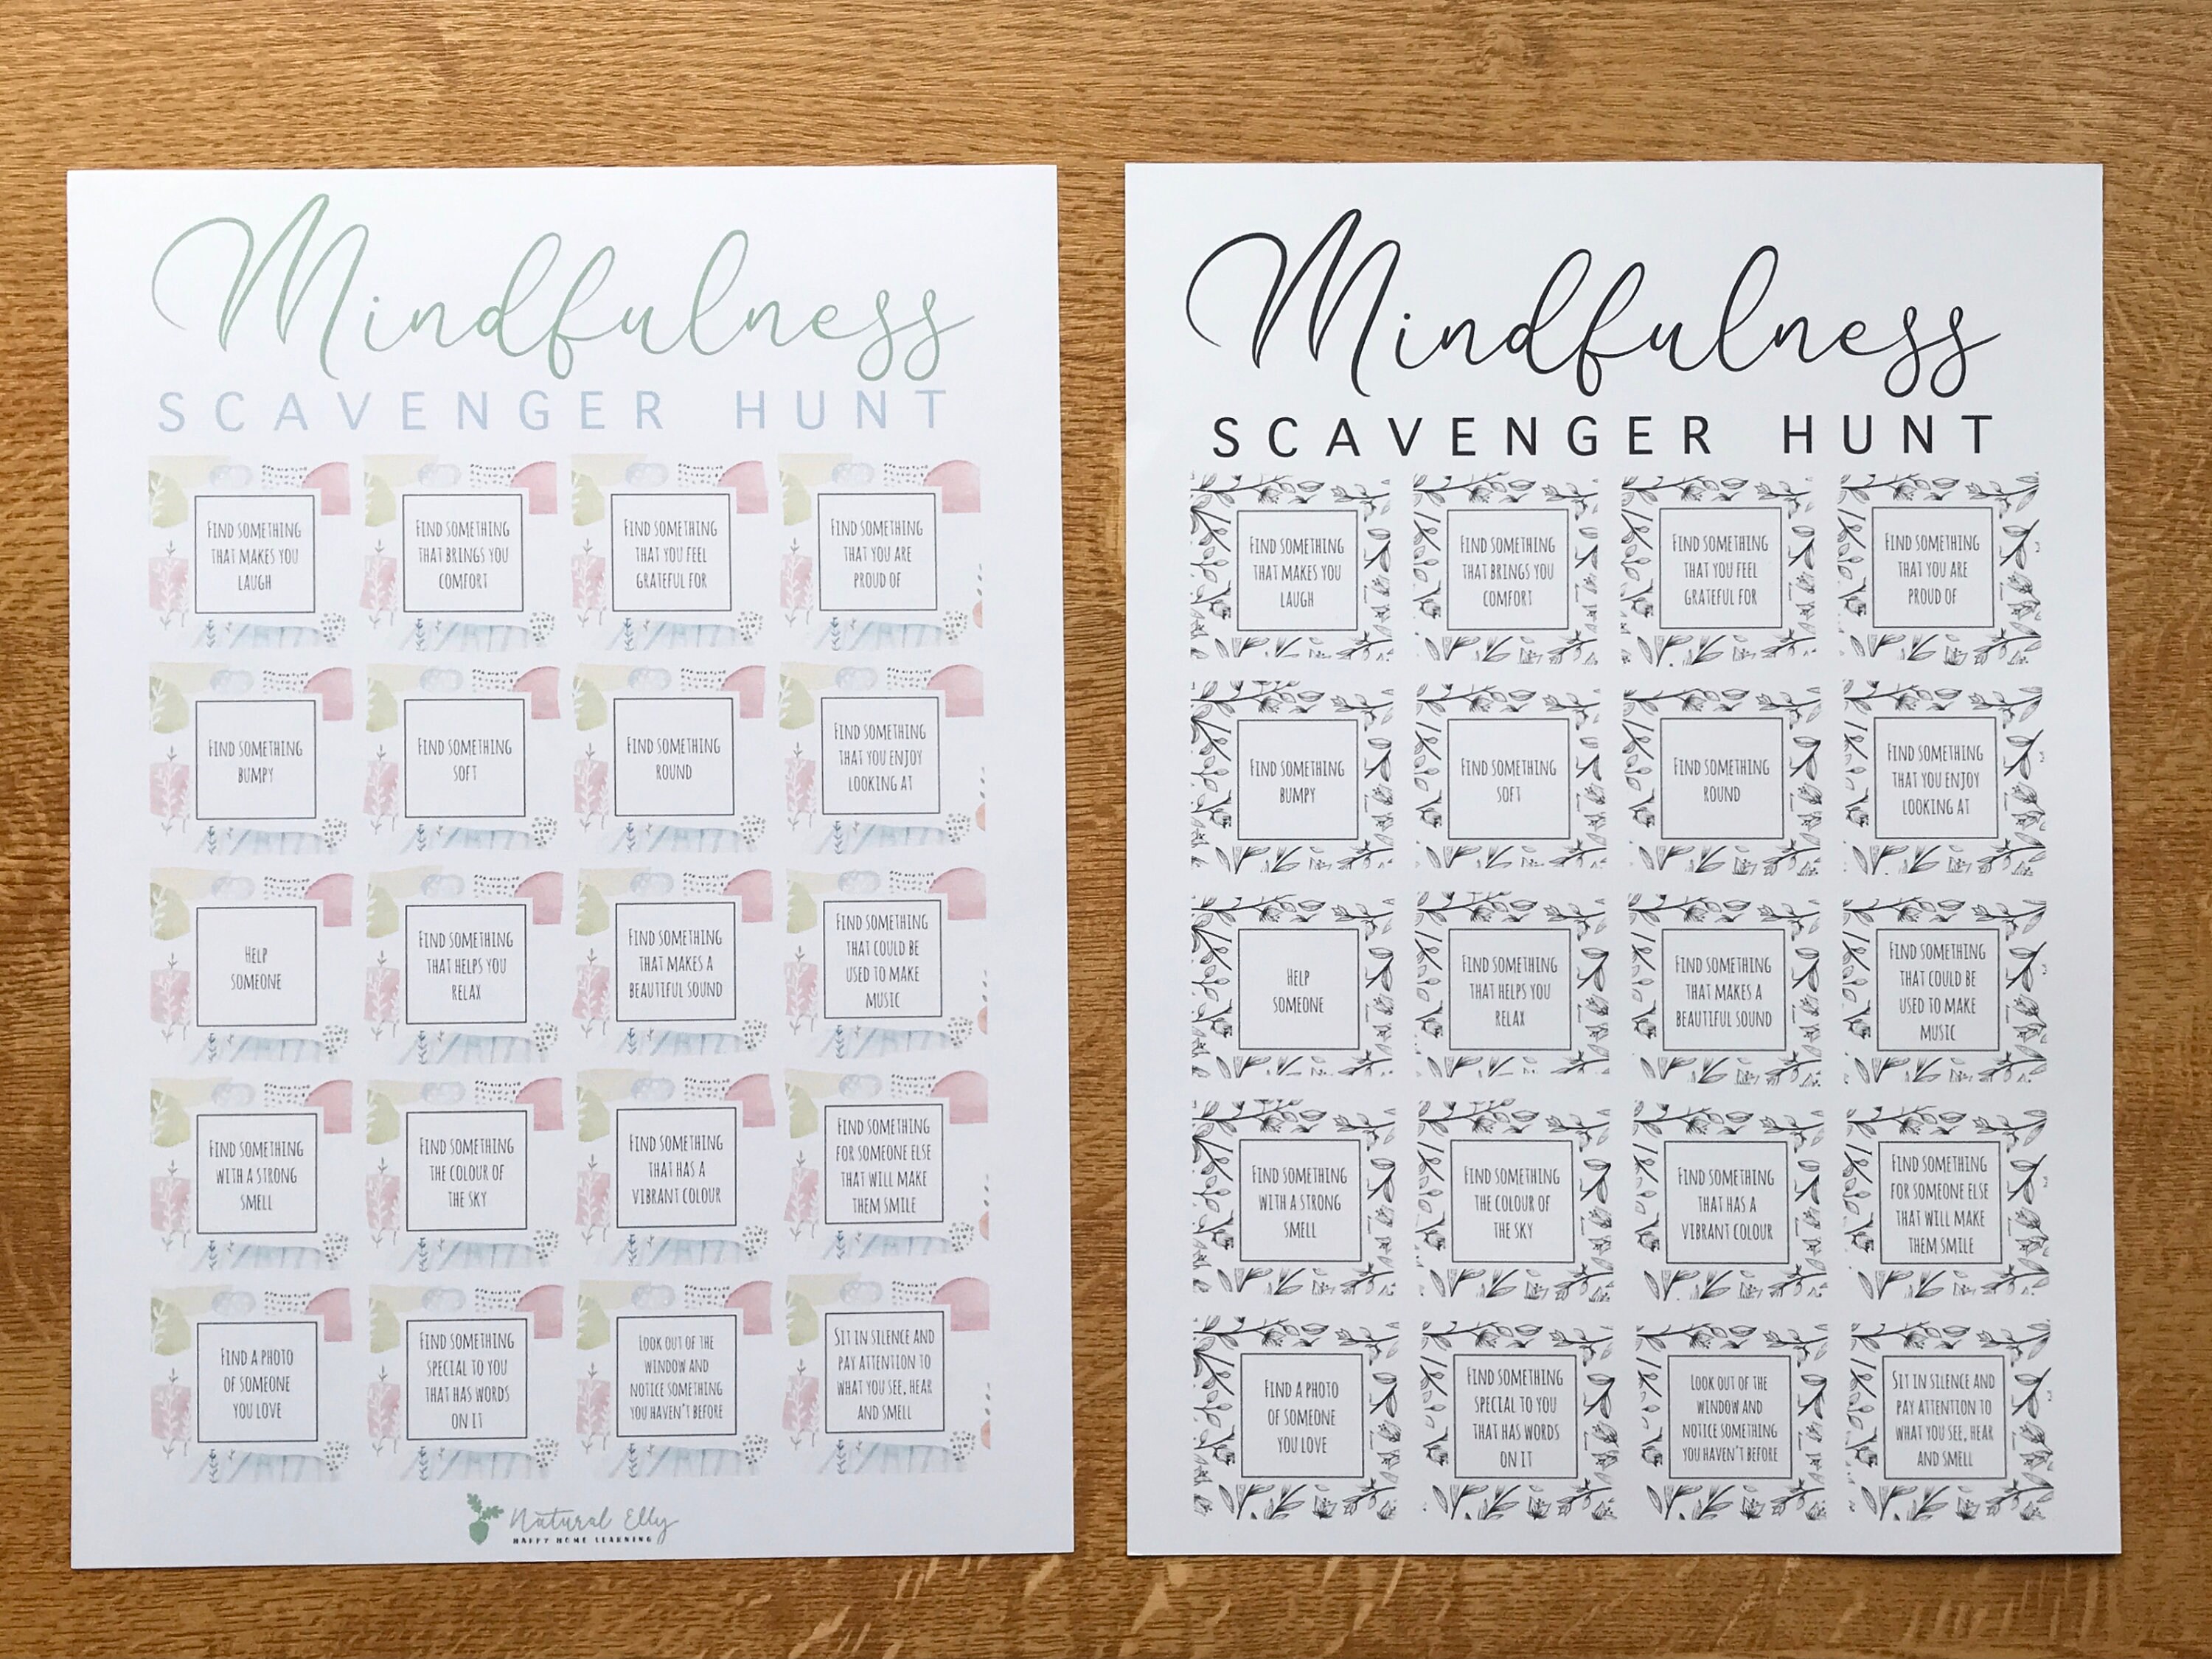 Mindfulness
SCAVENGER HUNT
FIND SOMETHING
THAT MAKES YOU
LAUGH
FIND SOMETHING
THAT BRINGS YOU
COMFORT
FIND SOMETHING
THAT YOU FEEL
GRATEFUL FOR
FIND SOMETHING
THAT YOU ARE
PROUD OF
FIND SOMETHING
BUMPY
FIND SOMETHING
SOFT
FIND SOMETHING
ROUND
FIND SOMETHING
THAT YOU ENJOY
LOOKING AT
HELP
SOMEONE
FIND SOMETHING
THAT HELPS YOU
RELAX
FIND SOMETHING
THAT MAKES A
BEAUTIFUL SOUND
FIND SOMETHING
THAT COULD BE
USED TO MAKE
MUSIC
FIND SOMETHING
WITH A STRONG
SMELL
FIND SOMETHING
THE COLOUR OF
THE SKY
FIND SOMETHING
THAT HAS A
VIBRANT COLOUR
FIND SOMETHING
FOR SOMEONE ELSE
THAT WILL MAKE
THEM SMILE
FIND A PHOTO
OF SOMEONE
YOU LOVE
FIND SOMETHING
SPECIAL TO YOU
THAT HAS WORDS
ON IT
LOOK OUT OF THE
WINDOW AND
NOTICE SOMETHING
YOU HAVEN'T BEFORE
SIT IN SILENCE AND
PAY ATTENTION TO
WHAT YOU SEE, HEAR
AND SMELL
Natural Elly
HAPPY HOME LEARNING
Mindfulness
SCAVENGER HUNT
FIND SOMETHING
THAT MAKES YOU
LAUGH
FIND SOMETHING
THAT BRINGS YOU
COMFORT
FIND SOMETHING
THAT YOU FEEL
GRATEFUL FOR
FIND SOMETHING
THAT YOU ARE
PROUD OF
FIND SOMETHING
BUMPY
FIND SOMETHING
SOFT
FIND SOMETHING
ROUND
FIND SOMETHING
THAT YOU ENJOY
LOOKING AT
HELP
SOMEONE
FIND SOMETHING
THAT HELPS YOU
RELAX
FIND SOMETHING
THAT MAKES A
BEAUTIFUL SOUND
FIND SOMETHING
THAT COULD BE
USED TO MAKE
MUSIC
FIND SOMETHING
WITH A STRONG
SMELL
FIND SOMETHING
THE COLOUR OF
THE SKY
FIND SOMETHING
THAT HAS A
VIBRANT COLOUR
FIND SOMETHING
FOR SOMEONE ELSE
THAT WILL MAKE
THEM SMILE
FIND A PHOTO
OF SOMEONE
YOU LOVE
FIND SOMETHING
SPECIAL TO YOU
THAT HAS WORDS
ON IT
LOOK OUT OF THE
WINDOW AND
NOTICE SOMETHING
YOU HAVEN'T BEFORE
SIT IN SILENCE AND
PAY ATTENTION TO
WHAT YOU SEE, HEAR
AND SMELL